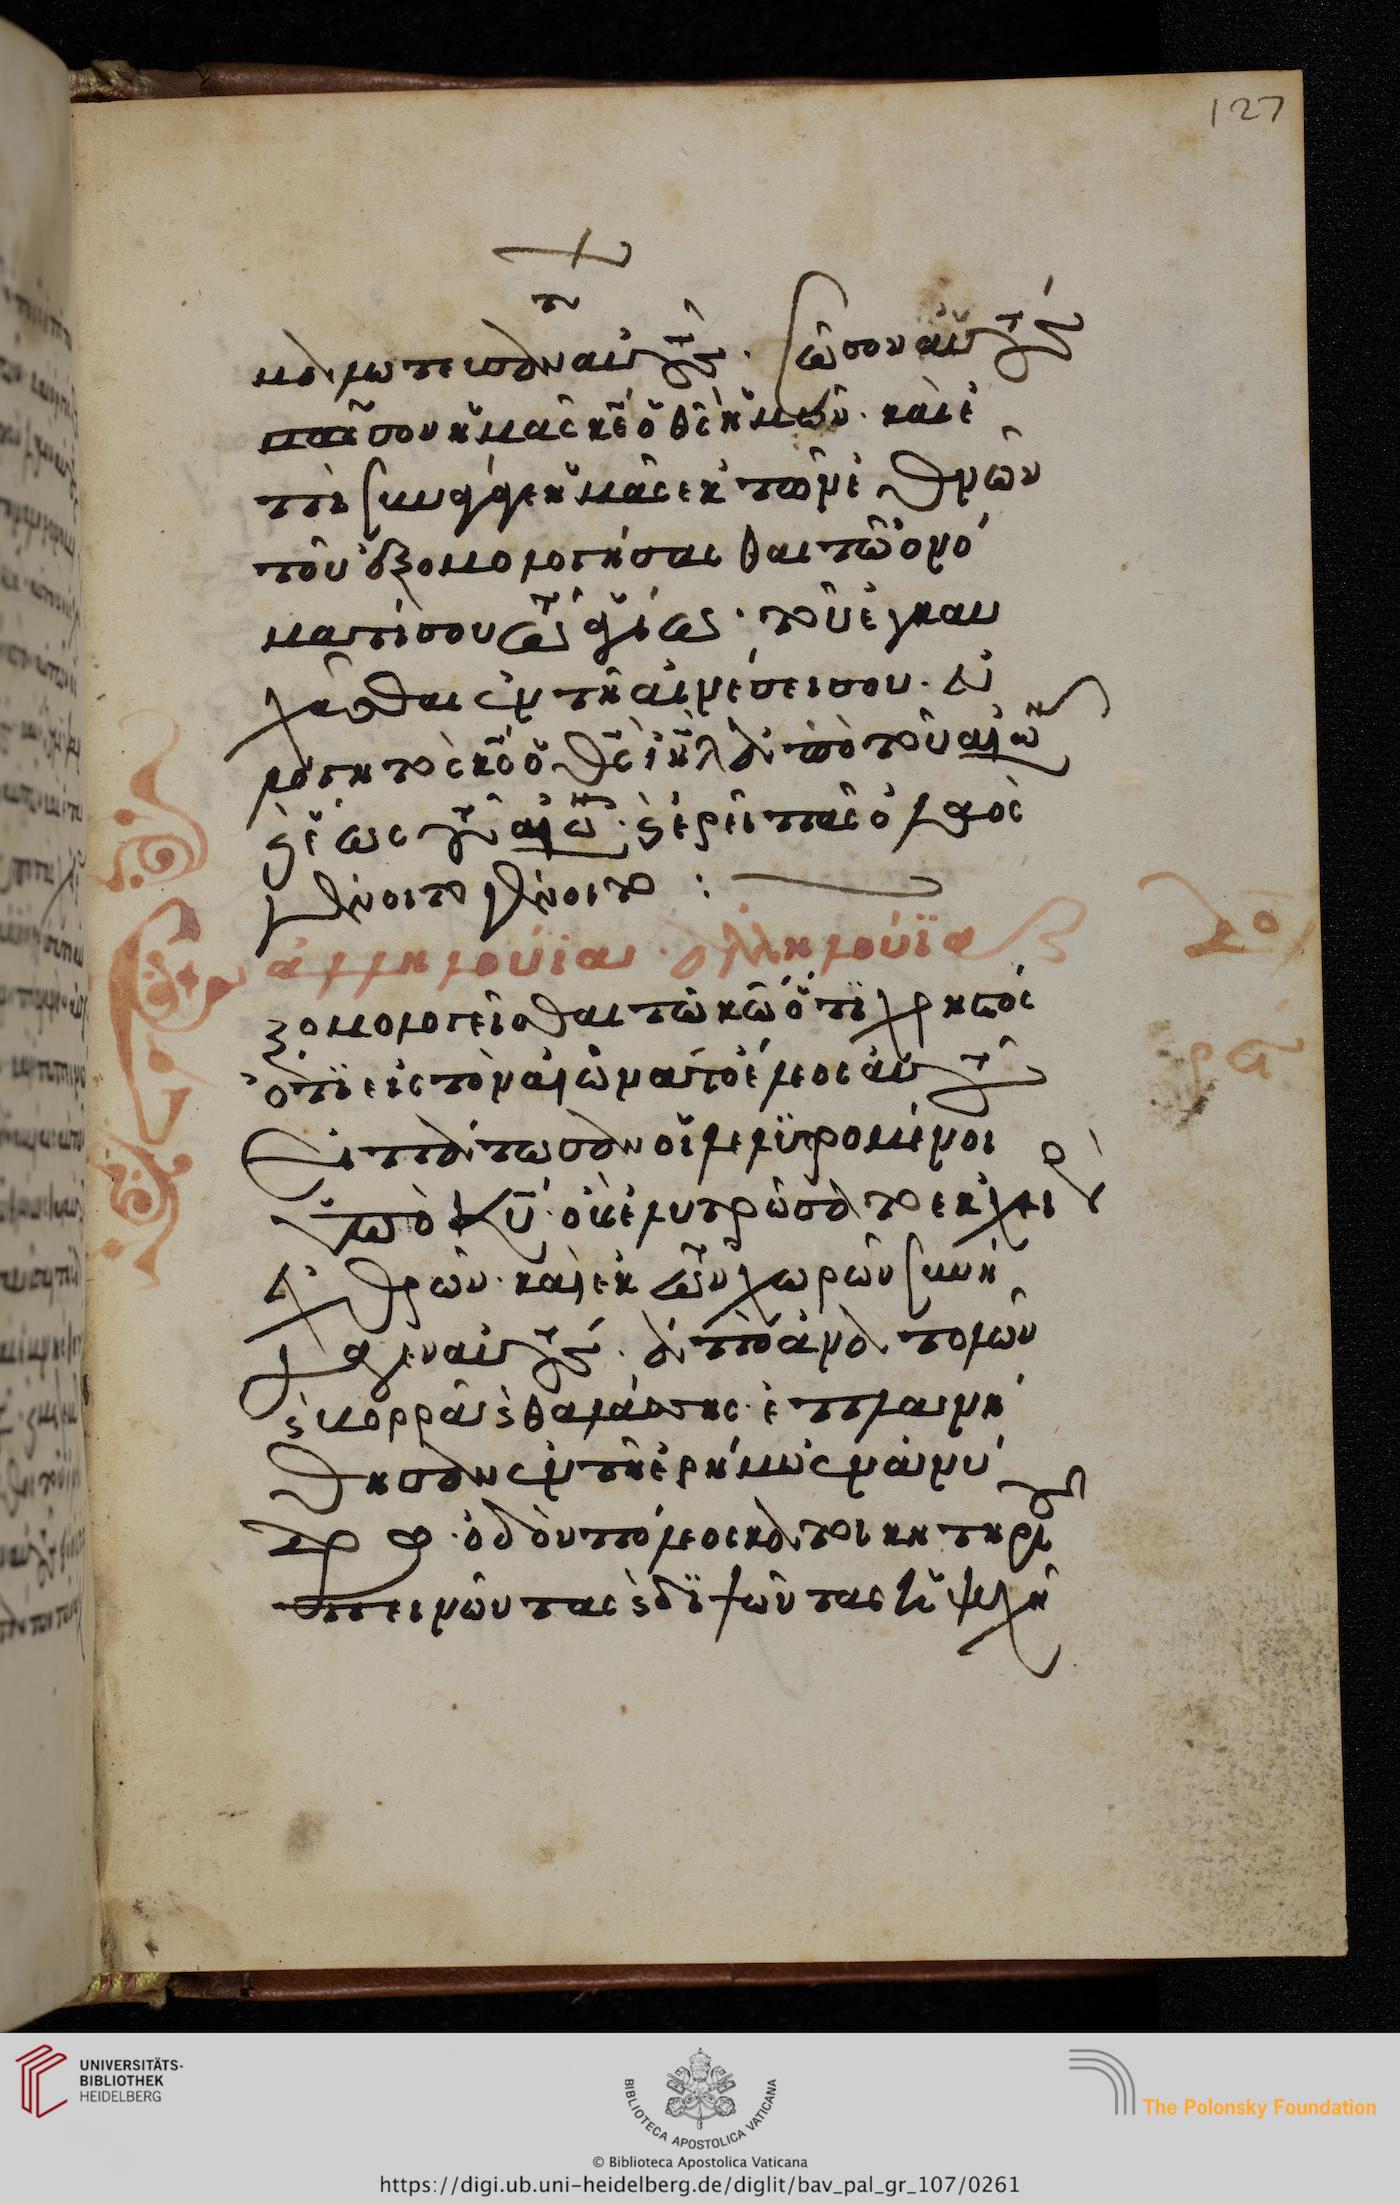 127
μαλωτευσάντων αὐτούς. Σῶσον
ἡμᾶς κε ὁ θς ἡμῶν. καὶ ἐ
πισυνάγαγε ἡμᾶς ἐκ τῶν ἐθνῶν
τοῦ ἐξομολογήσασθαι τῶ ὀνό
ματί σου τῶ ἁγίω. τοῦ ἐγκαυ
χᾶσθαι ἐν τῆ αἰνέσει σου. εὐ
λογητὸς κς ὁ θς ιηλ ἀπὸ τοῦ αἰῶ
ϗ ἕως τοῦ αἰῶ. ϗ ἐρεῖ πᾶς ὁ λαὸς
γένοιτο γένοιτο :
ἀλληλούϊα. ἀλληλούϊα
Ἐ
ξομολογεῖσθαι τῶ κω ὅτι χρηστός
ὅτι εἰς τὸν αἰῶνα τὸ ἔλεος αὐτοῦ
Εἰπάτωσαν οἱ λελϋτρομένοι
ὑπὸ κυ. οὓς ἐλυτρώσατο ἐκ χειρὸς
ἐχθρῶν. καὶ ἐκ τῶν χωρῶν συνή
γαγεν αὐτούς. ἀπὸ ἀνατολῶν
ϗ βορρᾶ ϗ θαλάσσης. ἐπλανή
θησαν ἐν τῆ ἐρήμω ἐν ἀνύ
δρω. ὁδὸν πόλεως κατοικητηρί
πεινῶντας ϗ δϊψῶντας ἡ ψυχὴ
ρς
UNIVERSITÄTS-
BIBLIOTHEK
HEIDELBERG
BIBLIOTECA APOSTOLICA VATICANA
The Polonsky Foundation
© Biblioteca Apostolica Vaticana
https://digi.ub.uni-heidelberg.de/diglit/bav_pal_gr_107/0261